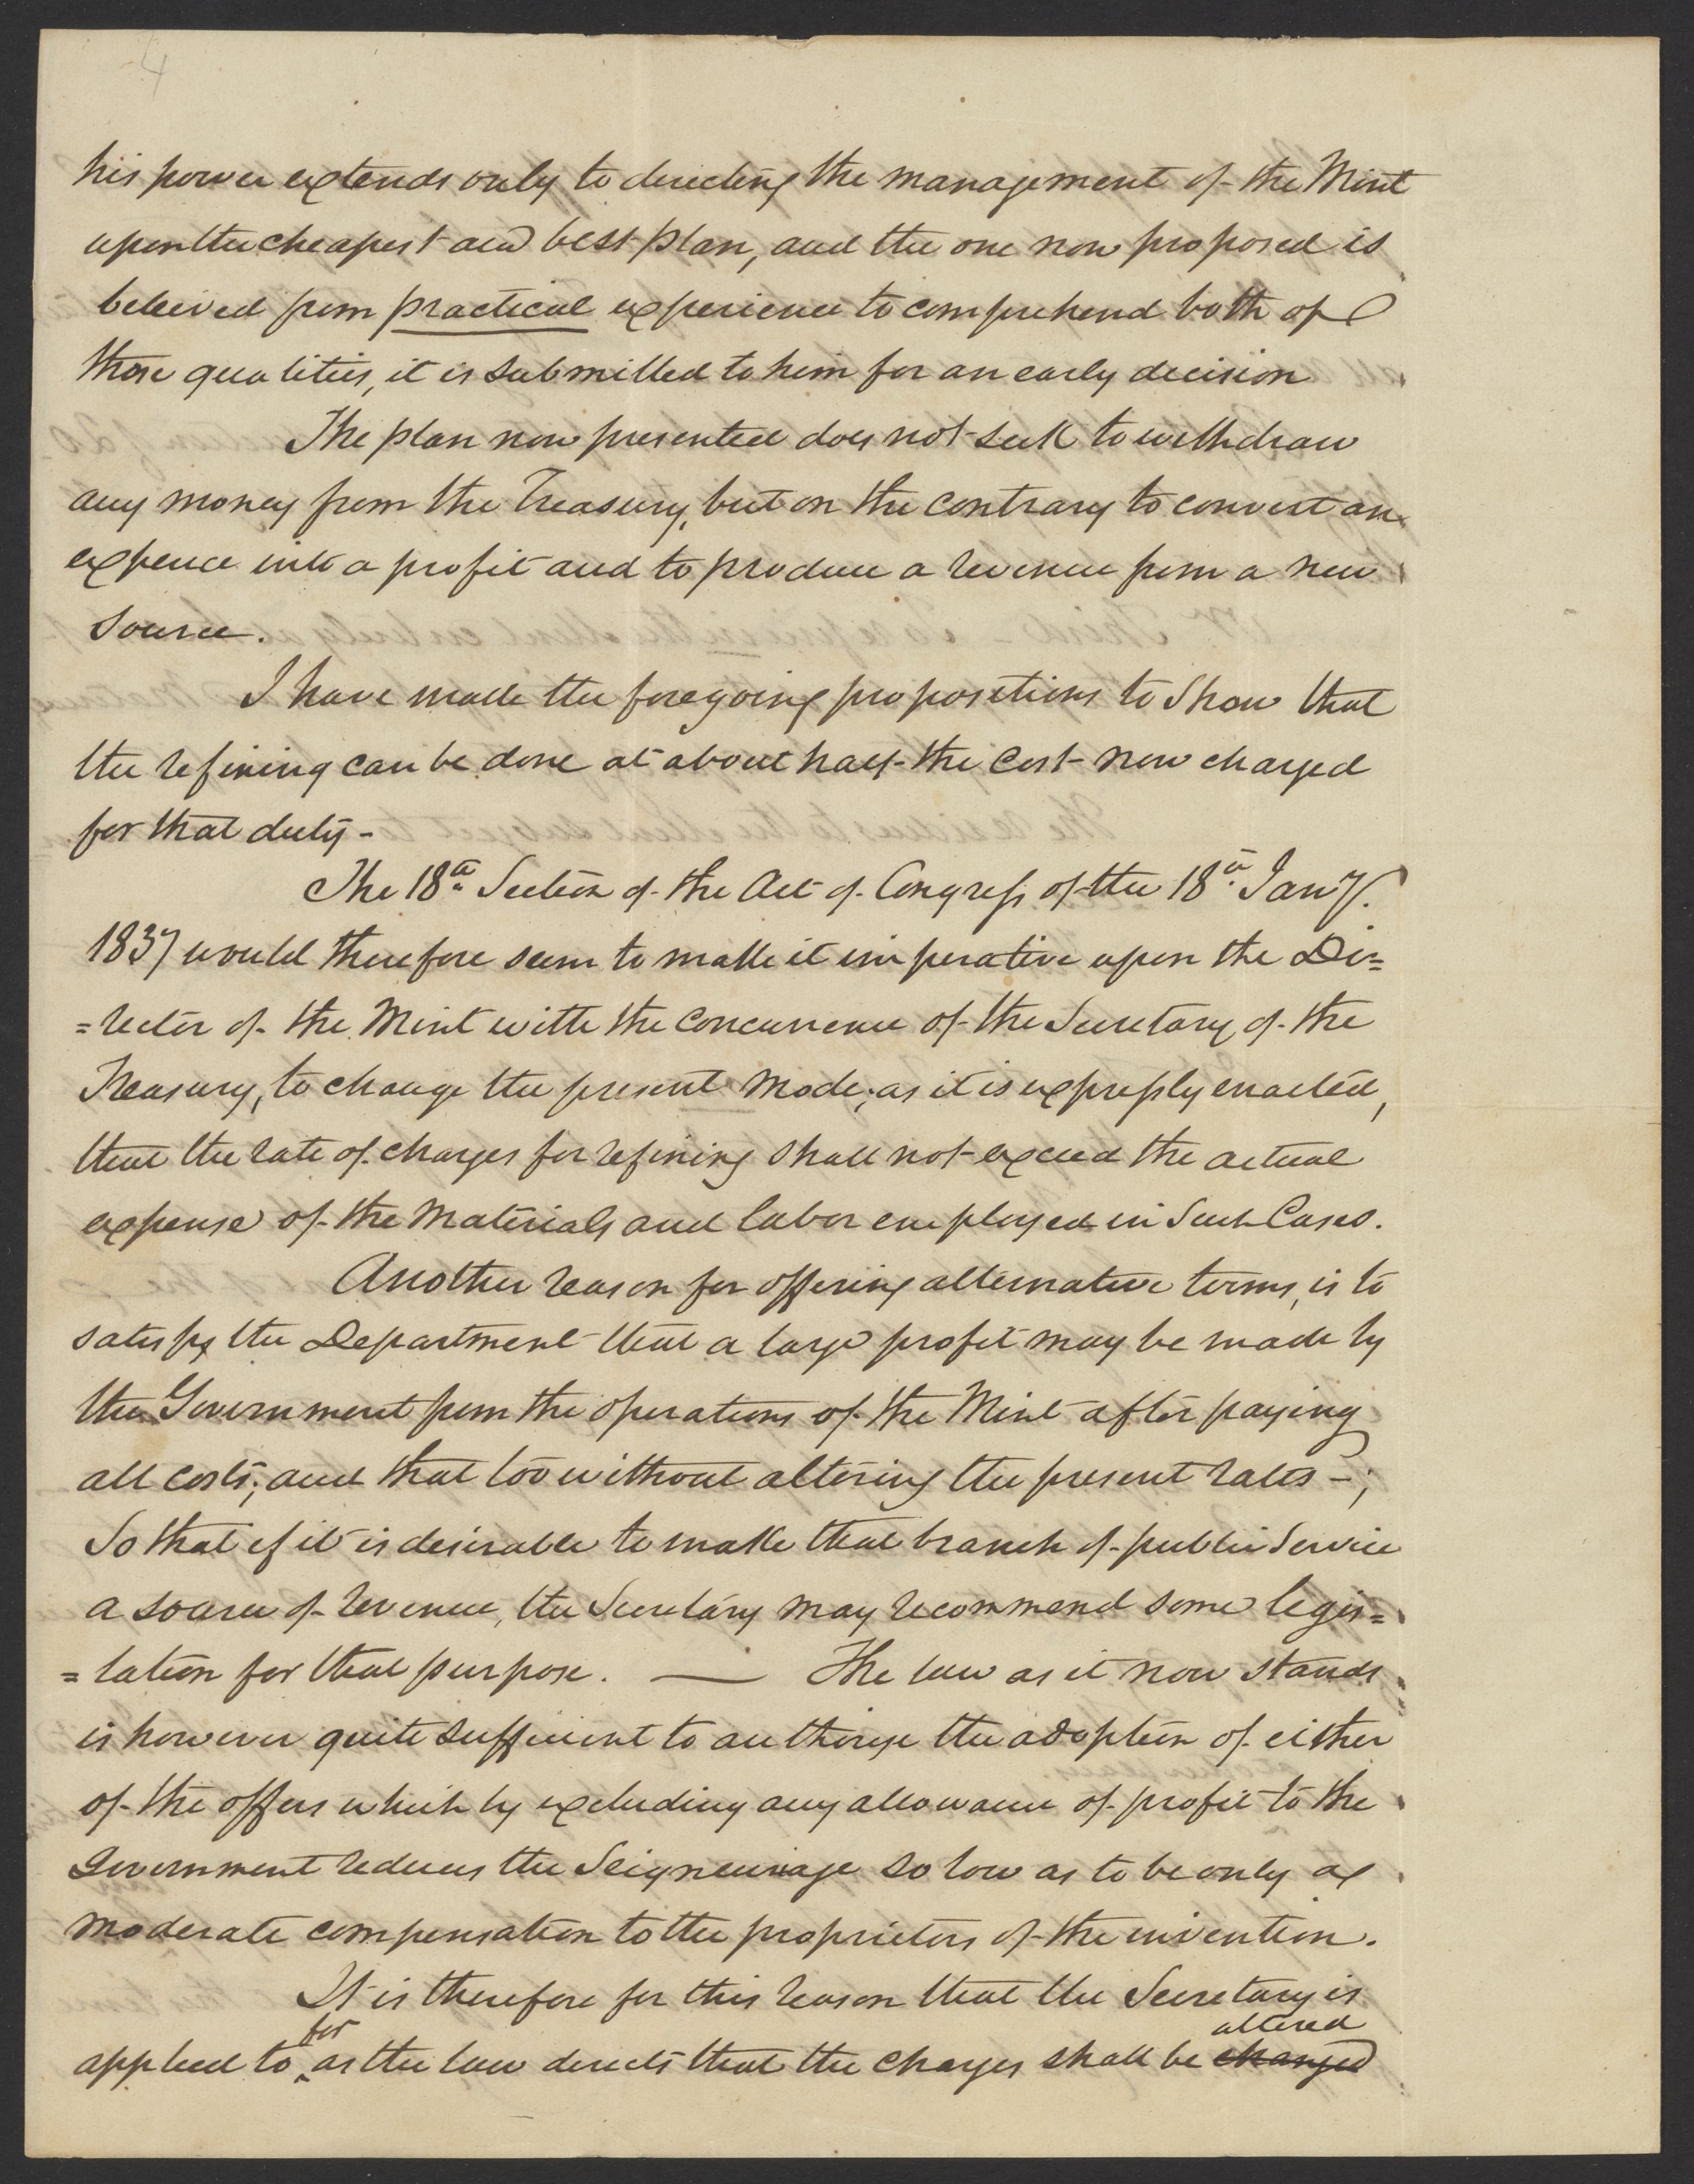 4
his power extends only to directing the management of the Mint
upon the cheapest and best plan, and the one now proposed is
beleived from practical experience to comprehend both of
those qualities, it is submitted to him for an early decision
The plan now presented does not seek to withdraw
any money from the Treasury, but on the contrary to convert an
expence into a profit and to produce a revenue from a new
source.
I have made the foregoing propositions to show that
the refining can be done at about half the cost now charged
for that duty -
The 18th Section of the Act of Congress of the 18th Jany.
1837 would therefore seem to make it imperative upon the Di=
=rector of the Mint with the concurrence of the Secretary of the
Treasury, to change the present mode; as it is expressly enacted,
that the rate of charges for refining shall not exceed the actual
expense of the Materials and labor employed in such Cases.
Another reason for offering alternative terms, is to
satisfy the Department that a large profit may be made by
the Government from the operations of the Mint after paying
all costs; and that too without altering the present rates -;
So that if it is desirable to make that branch of public Service
a source of revenue, the Secretary may recommend some legis=
=lation for that purpose. — The law as it now stands
is however quite sufficient to authorize the adoption of either
of the offers which by excluding any allowance of profit to the
Government reduces the Seigneurage so low as to be only a
moderate compensation to the proprietors of the invention.
It is therefore for this reason that the Secretary is
for altered
applied to ^ as the law directs that the charges shall be changed